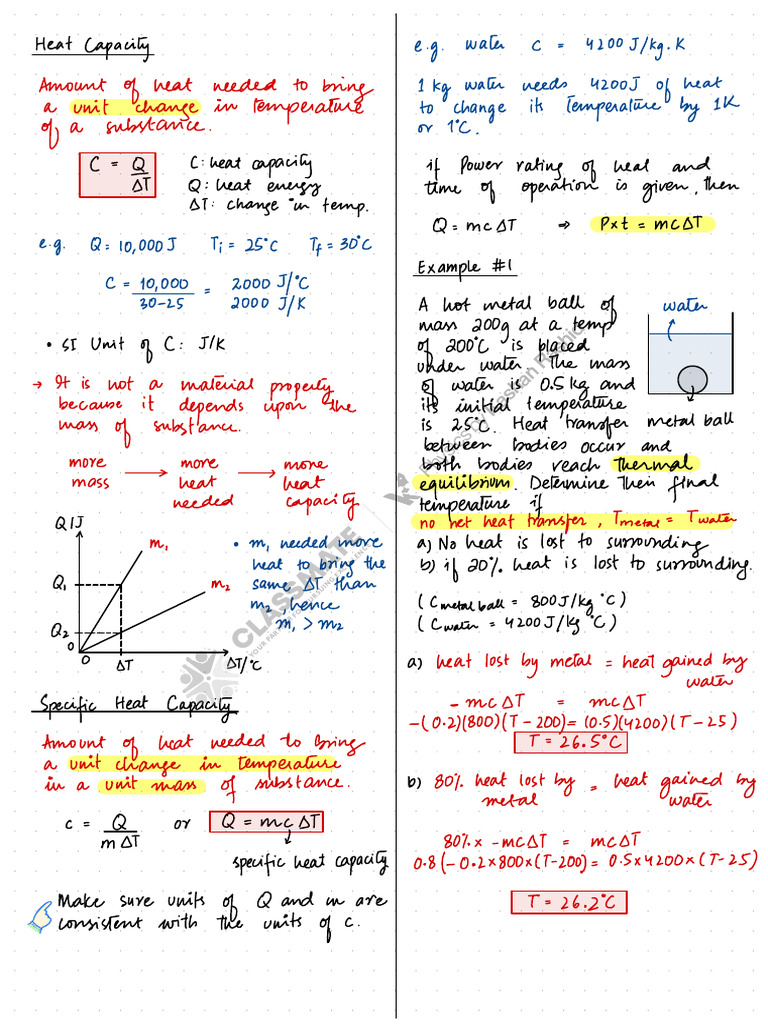 Heat Capacity
Amount of heat needed to bring
a unit change in temperature
of a substance.
C = Q/ΔT
C: heat capacity
Q: heat energy
ΔT: change in temp.
e.g. Q = 10,000 J Ti = 25°C Tf = 30°C
C = 10,000/30-25 = 2000 J/°C
2000 J/K
• SI Unit of C: J/K
→ It is not a material property
because it depends upon the
mass of substance.
more mass → more heat needed → more heat capacity
Q/J
m1
m2
Q1
Q2
0
0
ΔT
ΔT/°C
• m1 needed more
heat to bring the
same ΔT than
m2, hence
m1 > m2
Specific Heat Capacity
Amount of heat needed to bring
a unit change in temperature
in a unit mass of substance.
c = Q/mΔT or Q = mcΔT
specific heat capacity
Make sure units of Q and m are
consistent with the units of c.
e.g. water c = 4200 J/kg.K
1 kg water needs 4200J of heat
to change its temperature by 1K
or 1°C.
if Power rating of heat and
time of operation is given, then
Q = mcΔT ⇒ P×t = mcΔT
Example #1
A hot metal ball of
mass 200g at a temp
of 200°C is placed
under water. The mass
of water is 0.5 kg and
its initial temperature
is 25°C. Heat transfer
between bodies occur and
both bodies reach thermal
equilibrium. Determine their final
temperature if
no net heat transfer, Tmetal = Twater
water
metal ball
a) No heat is lost to surrounding
b) if 20% heat is lost to surrounding.
(Cmetal ball = 800J/kg °C)
(Cwater = 4200J/kg °C)
a) heat lost by metal = heat gained by
water
-mcΔT = mcΔT
-(0.2)(800)(T-200) = (0.5)(4200)(T-25)
T = 26.5°C
b) 80% heat lost by metal = heat gained by water
80% × -mcΔT = mcΔT
0.8(-0.2×800×(T-200) = 0.5×4200×(T-25)
T = 26.2°C
CLASSMATE